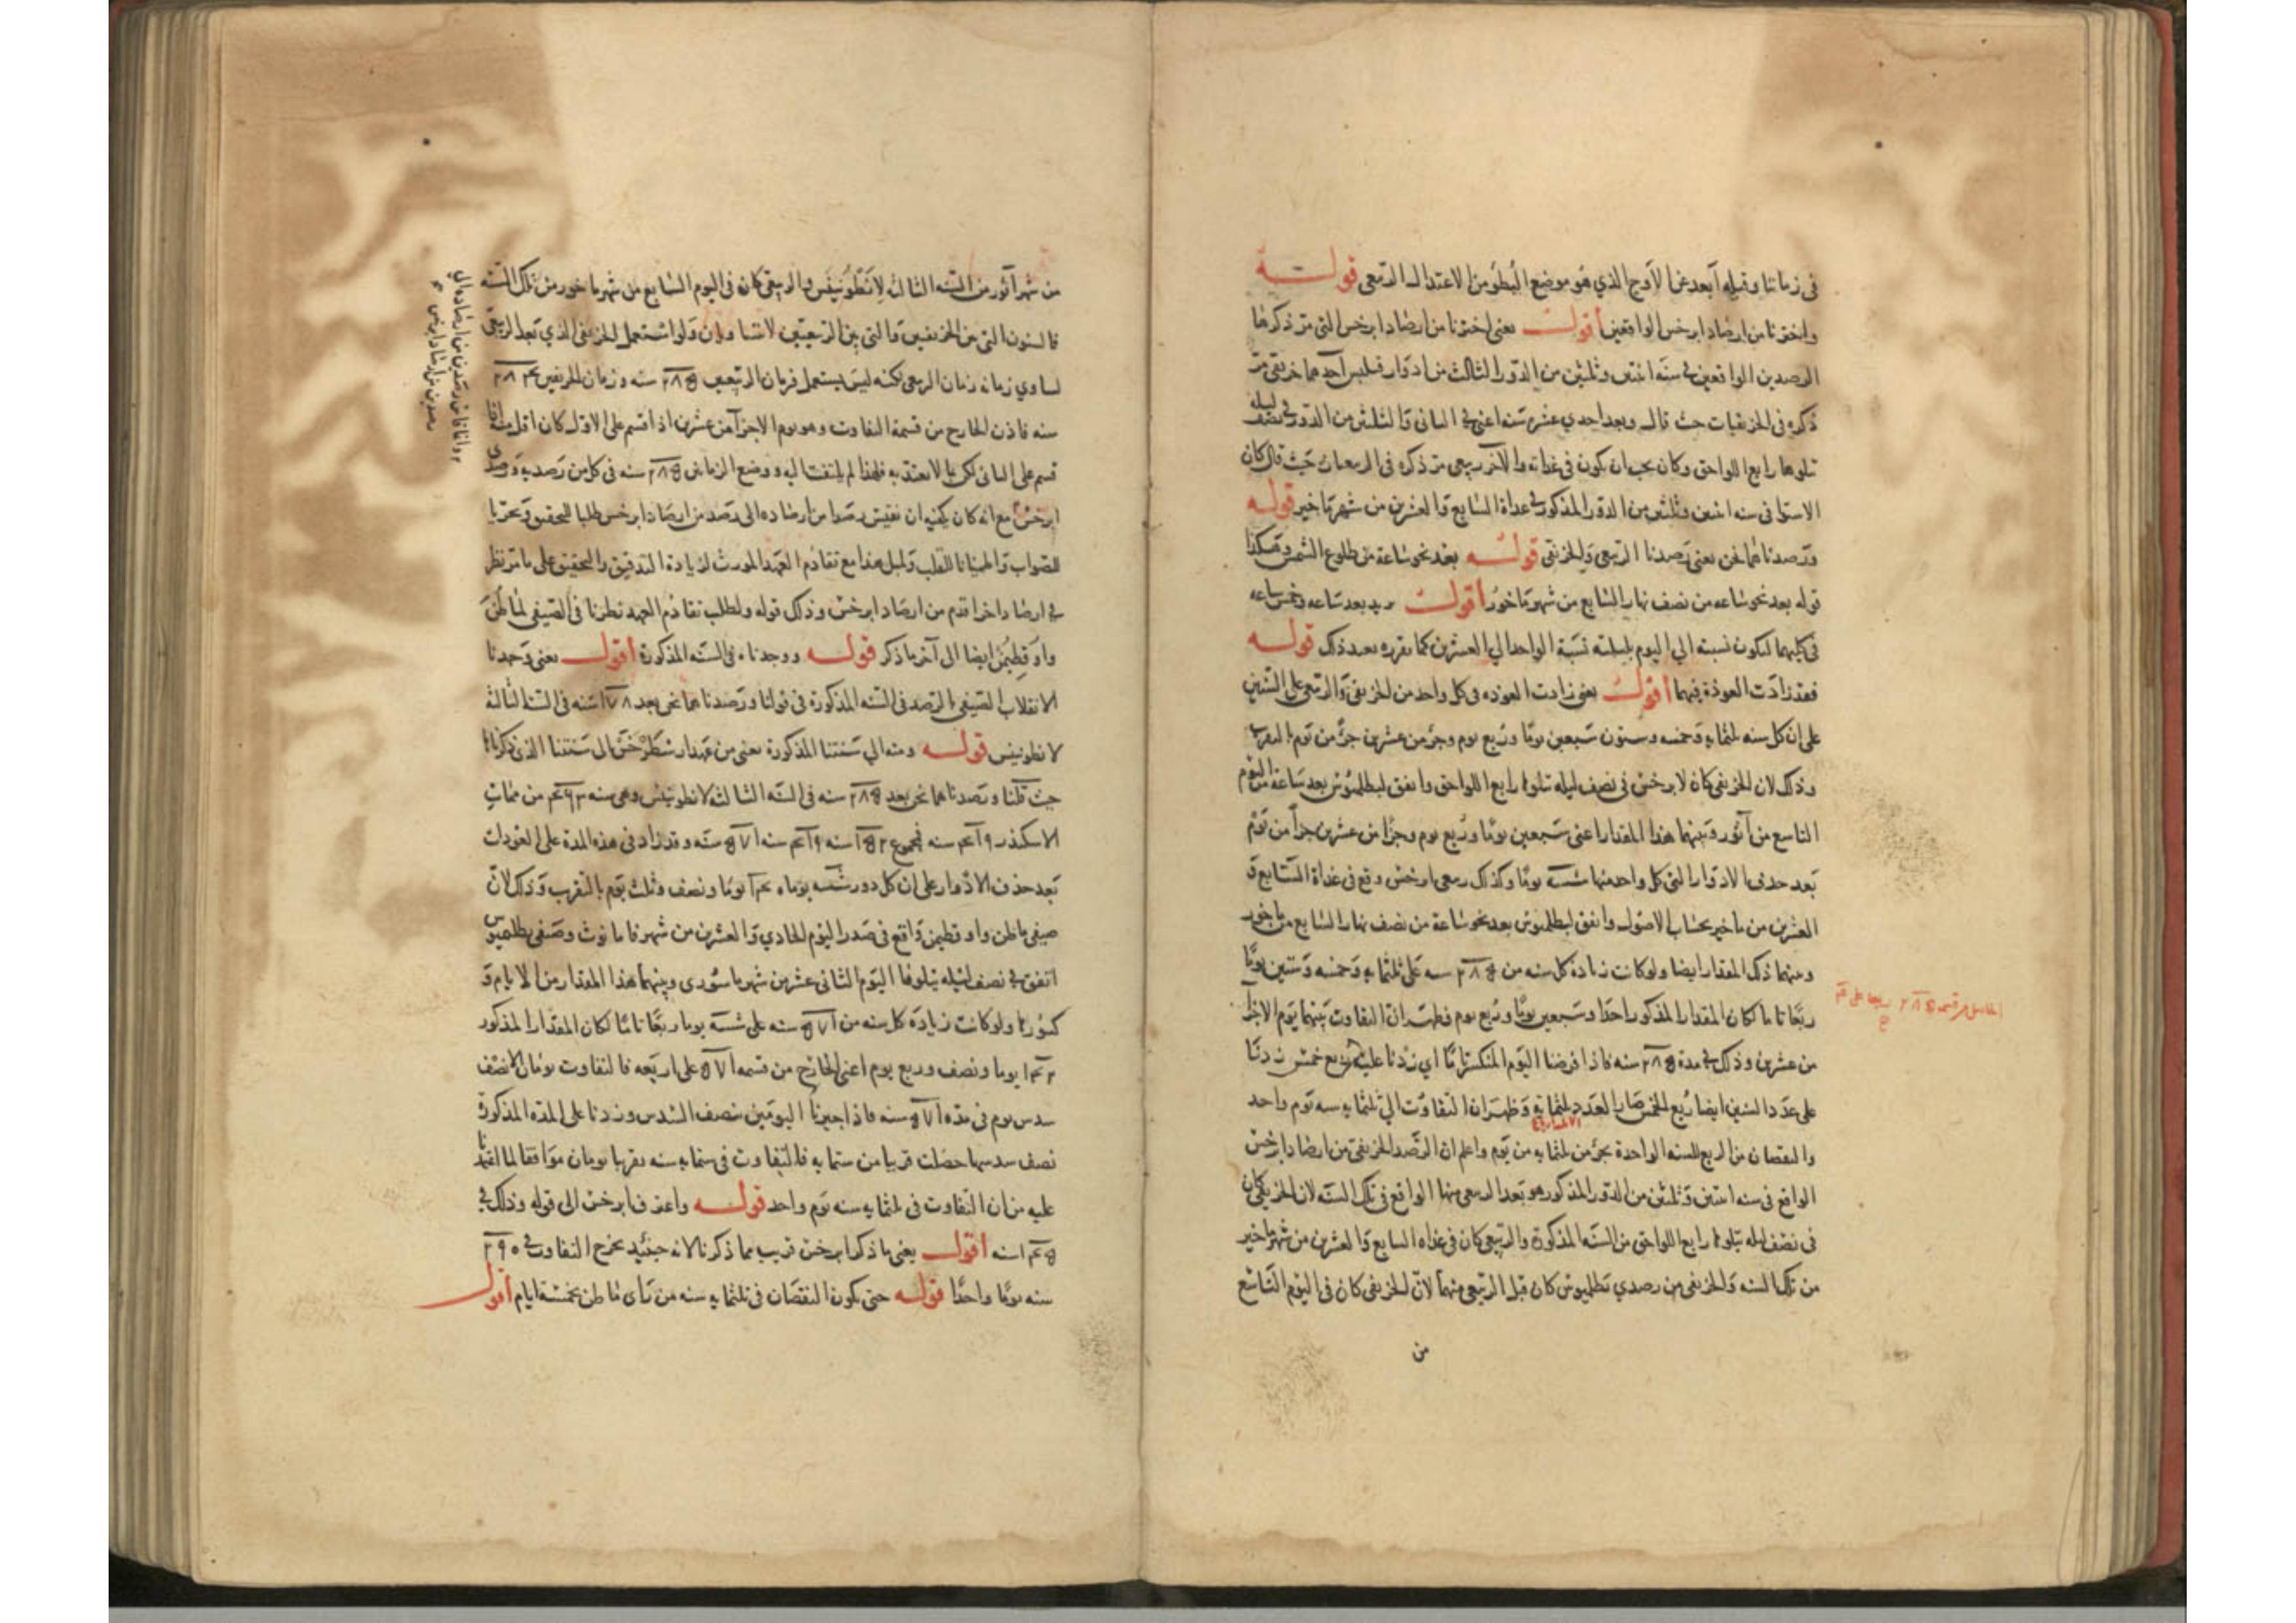 في زماننا وقبله أبعد عن الأوج الذي هو موضع البطؤ من الاعتدال الربعي قوله
واخترنا من ارصاد ابرخس الواقعين أقول يعني اخترنا من ارصاد ابرخس التي مر ذكرها
الرصدين الواقعين في سنة اثنين وثلثين من الدور الثالث من ادوار قلبس أحدهما خريفي مر
ذكره في الخريفيات حيث قال وبعد احدي عشر سنة اعني في الثاني والثلثين من الدور في نصف ليله
تلوها رابع اللواحق وكان يجب ان يكون في غداته والآخر ربيعي مر ذكره في الربيعيات حيث قال كان
الاستوا في سنه اثنين وثلثين من الدور المذكور في غداة السابع والعشرين من شهر ماخير قوله
ورصدناهما نحن يعني رصدنا الربيعي والخريفي قوله بعد نحو ساعة من طلوع الشمس وهكذا
قوله بعد نحو ساعه من نصف نهار السابع من شهر ماخور أقول يريد بعد ساعه وخمس ساعه
في كليهما لتكون نسبته الي اليوم بليلته نسبة الواحد الي العشرين كما يقرره بعد ذلك قوله
فقد زادت العودة فيهما أقول يعني زادت العوده في كل واحد من الخريفي والربيعي علي السنين
علي ان كل سنه ثلثمايه وخمسه وستون سبعين يوما وربع يوم وجزء من عشرين جزء من يوم بالتقريب
وذلك لان الخريفي كان لابرخس في نصف ليله تلوها رابع اللواحق واتفق لبطلميوس بعد ساعة من اليوم
التاسع من آثور وبينهما هذا المقدار اعني سبعين يوما وربع يوم وجزءا من عشرين جزءا من يوم
بعد حذف الادوار التي كل واحد منها شسه يوما وكذلك ربيعي ابرخس وقع في غداة السابع و
العشرين من ماخير بحساب الاصول واتفق لبطلميوس بعد نحو ساعة من نصف نهار السابع من ماخور
وبينهما ذلك المقدار ايضا ولو كانت زيادة كل سنه من ٢٨٥ سنه علي ثلثمايه وخمسه وستين يوما
ربعا تاما لكان المقدار المذكور احدا وسبعين يوما وربع يوم فظهر ان التفاوت بينهما يوم الا جزءا
من عشرين وذلك في مدة ٢٨٥ سنه فاذا فرضنا اليوم المنكسر تاما اي زدنا عليه ربع خمس زدنا
علي عدد السنين ايضا ربع الخمس صار العدد ثلثمايه وظهر ان التفاوت الي ثلثمايه سنه يوم واحد
والنقصان من الربع للسنه الواحدة بجزء من ثلثمايه من يوم واعلم ان الرصد الخريفي من ارصاد ابرخس
الواقع في سنه اثنين وثلثين من الدور المذكور هو بعد الربيعي منها الواقع في تلك السنه لان الخريفي كان
في نصف ليله تلوها رابع اللواحق من السنه المذكورة والربيعي كان في غداه السابع والعشرين من شهر ماخير
من تلك السنه والخريفي من رصدي بطلميوس كان قبل الربيعي منهما لان الخريفي كان في اليوم التاسع
من
من شهر آثور من السنه الثالثه لانطونينس والربيعي كان في اليوم السابع من شهر ماخور من تلك السنه
فالسنون التي بين الخريفيين والتي بين الربيعيين لا تتساويان ولو استعمل الخريفي الذي بعد الربيعي
لساوي زمانه زمان الربيعي لكنه ليس يستعمل فزمان الربيعيين ٢٨٥ سنه وزمان الخريفيين ٢٨٤
سنه فاذن الخارج من قسمة التفاوت وهو يوم الا جزءا من عشرين اذا قسم علي الاول كان اقل منه اذا
قسم علي الثاني لكن بما لا يعتد به فلهذا لم يلتفت اليه ووضع الزمانين ٢٨٥ سنه في كل من رصديه ورصدي
ابرخس مع انه كان يكفيه ان يقيس رصدا من ارصاده الي رصد من ارصاد ابرخس طلبا للتحقيق وتحريا
للصواب واطمينانا للقلب ولمثل هذا مع تقادم العهد المورث لزيادة التدقيق والتحقيق علي ما مر نظر
في ارصاد اخر اقدم من ارصاد ابرخس وذلك قوله ولطلب تقادم العهد نظرنا في الصيفي لماطن
واوقطيمن ايضا الي آخر ما ذكر قوله ووجدناه في السنه المذكورة أقول يعني وجدنا
الانقلاب الصيفي بالرصد في السنه المذكورة في قولنا ورصدناهما نحن بعد سنه في السنة الثالثة
لانطونينس قوله ومنه الي سنتنا المذكورة يعني من عهد ارسطرخس الي سنتنا الذي ذكرناها
حيث قلنا ورصدناهما نحن بعد ٢٨٥ سنه في السنه الثالثه لانطونينس وهي سنه ٤٦٣ من ممات
الاسكندر ٤١٩ سنه فمجموع ١٥٢ سنه ٤١٩ سنه ٥٧١ سنه وقد زاد في هذه المدة علي العودات
بعد حذف الادوار علي ان كل دور شسه يوما ١٤٠ يوما ونصف وثلث يوم بالتقريب وذلك لان
صيفي ماطن واوقطيمن واقع في صدر اليوم الحادي والعشرين من شهر فامانوث وصيفي بطلميوس
اتفق في نصف ليله يتلوها اليوم الثاني عشر من شهر ماسوري وبينهما هذا المقدار من الايام و
كسورها ولو كانت زيادة كل سنه من ٥٧١ سنه علي شسه يوما ربعا تاما لكان المقدار المذكور
١٤٢ يوما ونصف وربع يوم اعني الخارج من قسمه ٥٧١ علي اربعه فالتفاوت يومان الا نصف
سدس يوم في مده ٥٧١ سنه فاذا اجبرنا اليومين بنصف السدس وزدنا علي المده المذكورة
نصف سدسها حصلت قريبا من ستمايه فالتفاوت في ستمايه سنه تقريبا يومان موافقا لما اتفقنا
عليه من ان التفاوت في ثلثمايه سنه يوم واحد قوله واعترف ابرخس الي قوله وذلك في
١٤٥ سنه أقول يعني ما ذكر ابرخس قريب مما ذكرنا لانه حينئذ يخرج التفاوت في ٢٩٠
سنه يوما واحدا قوله حتي يكون النقصان في ثلثمايه سنه من راي ماطن بخمسة ايام أقول